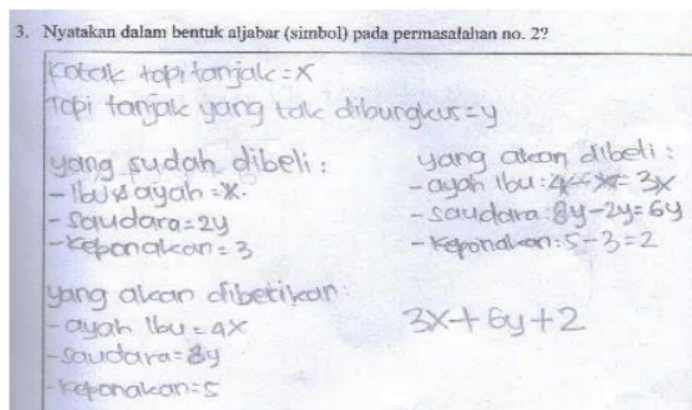 3. Nyatakan dalam bentuk aljabar (simbol) pada permasalahan no. 2?
Kotak topi tanjak = x
Topi tanjak yang tak dibungkus = y
yang sudah dibeli :
- Ibu & ayah = x.
- Saudara = 2y
- keponakan = 3
yang akan dibeli :
- ayah ibu : 4x - x = 3x
- saudara : 8y - 2y = 6y
- keponakan : 5 - 3 = 2
yang akan diberikan :
- ayah ibu = 4x
- saudara = 8y
- keponakan = 5
3x + 6y + 2